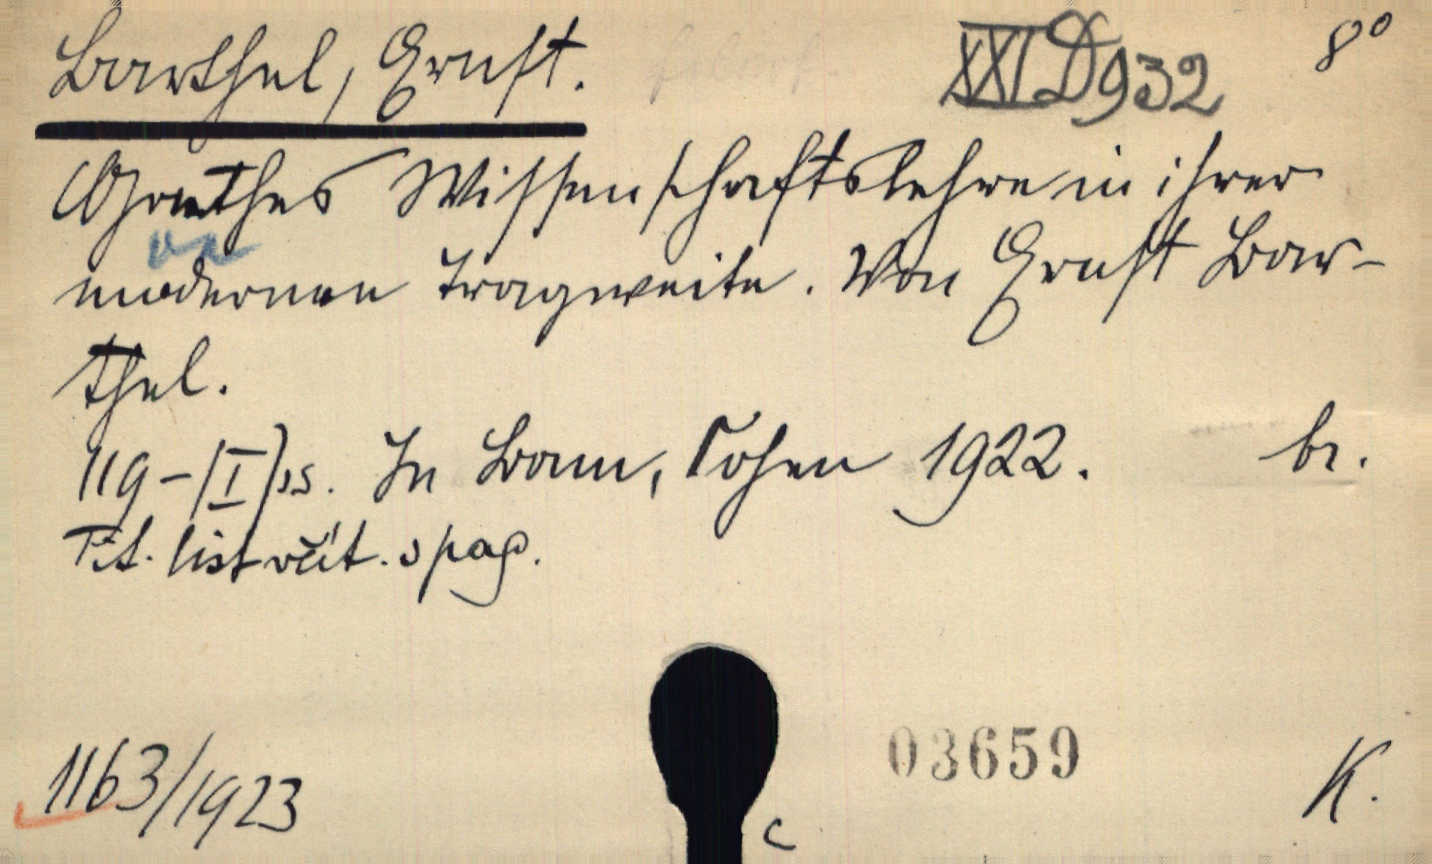 Barthel, Ernst. XXI D 932 8°
Goethes Wissenschaftslehre in ihrer
modernen Tragweite. Von Ernst Bar-
thel.
119-[I] ss. In Bonn, Cohen 1922. br.
Tit. list včít. s pag.
03659
1163/1923 K.
c